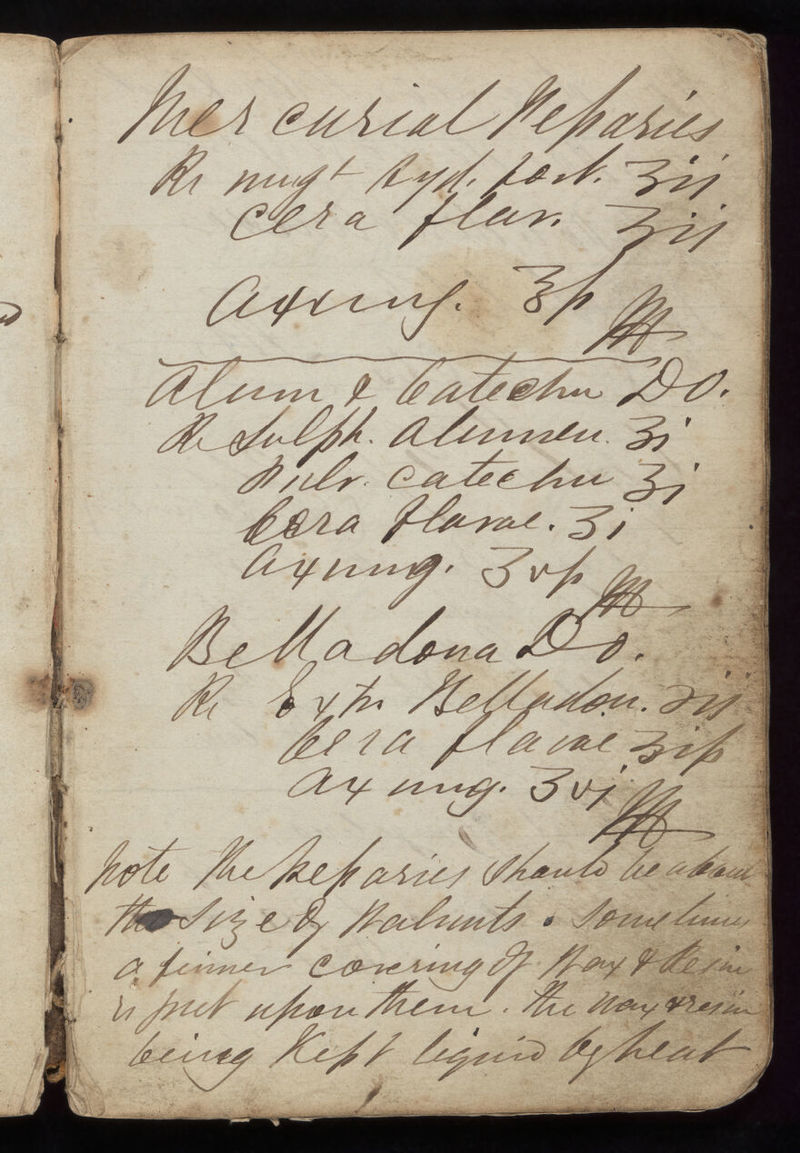 Mercurial Pessaries
Rx ungt Hyd. fort. ʒij
Cera flav. ʒij
Axung. ʒß
M
Alum & Catechu Do.
Rx Sulph. Alumen. ʒj
Pulv. Catechu ʒj
Cera flavae. ʒj
Axung. ʒvß
M
Belladona Do.
Rx Extr. Belladon. ʒij
Cera flavae ʒiß
Axung. ʒvj
M
Note The Pessaries should be about
the size of Walnuts. Sometimes
a firmer covering of Wax & Resin
is put upon them. the wax & resin
being Kept liquid by heat